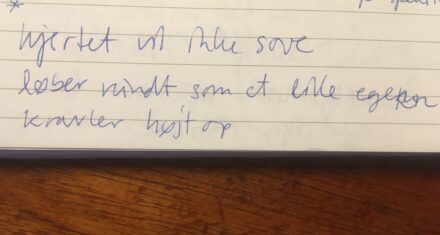 *
hjertet vil ikke sove
løber rundt som et lille egern
kravler højt op